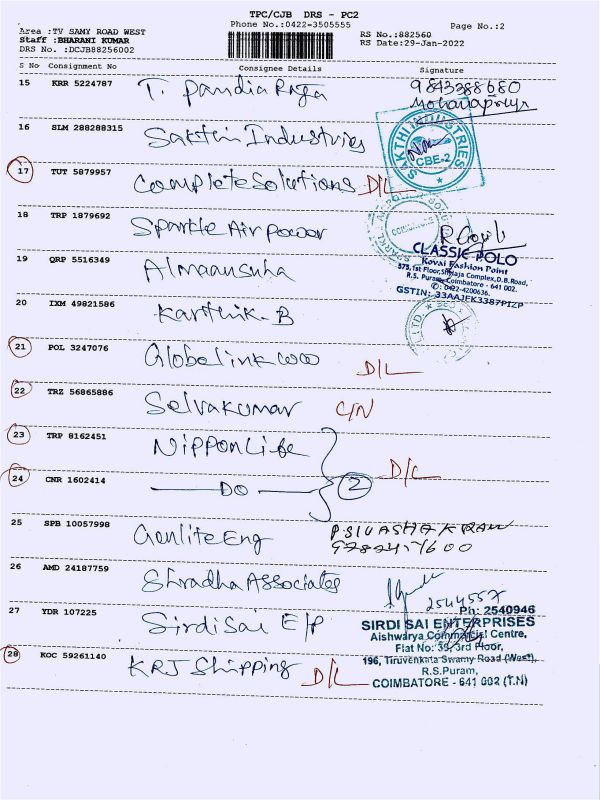 TPC/CJB DRS - PC2
Area :TV SAMY ROAD WEST Phone No.:0422-3505555 Page No.:2
Staff :BHARANI KUMAR RS No.:882560
DRS No. :DCJB88256002 RS Date:29-Jan-2022
S No Consignment No Consignee Details Signature
15 KRR 5224787 T. PandiaRaja 9843388680
Mohanapriya
16 SLM 288288315 Sakthi Industries
SAKTHI INDUSTRIES
CBE-2
17 TUT 5879957 Complete Solutions D/L
18 TRP 1879692 Sparkle Air Power
CLASSIC POLO
Kovai Fashion Point
19 QRP 5516349 Almaansuha
575, 1st Floor, Shylaja Complex, D.B. Road,
R.S. Puram, Coimbatore - 641 002.
✆: 0422-4200636,
GSTIN: 33AAJEK3387P1ZP
20 IXM 49821586 Karthik. B
21 POL 3247076 Globelink WW D/L
22 TRZ 56865886 Selvakumar C/N
23 TRP 8162451 Nippon Life
2 D/L
24 CNR 1602414 DO
25 SPB 10057998 Genlite Eng
26 AMD 24187759 Shradha Associates
2544557
Ph: 2540946
27 YDR 107225 Sirdi Sai E/P
SIRDI SAI ENTERPRISES
Aishwarya Commercial Centre,
Flat No: 39, 3rd Floor,
28 KOC 59261140 KRJ Shipping D/L
196, Tiruvenkata Swamy Road (West),
R.S.Puram,
COIMBATORE - 641 002 (T.N)